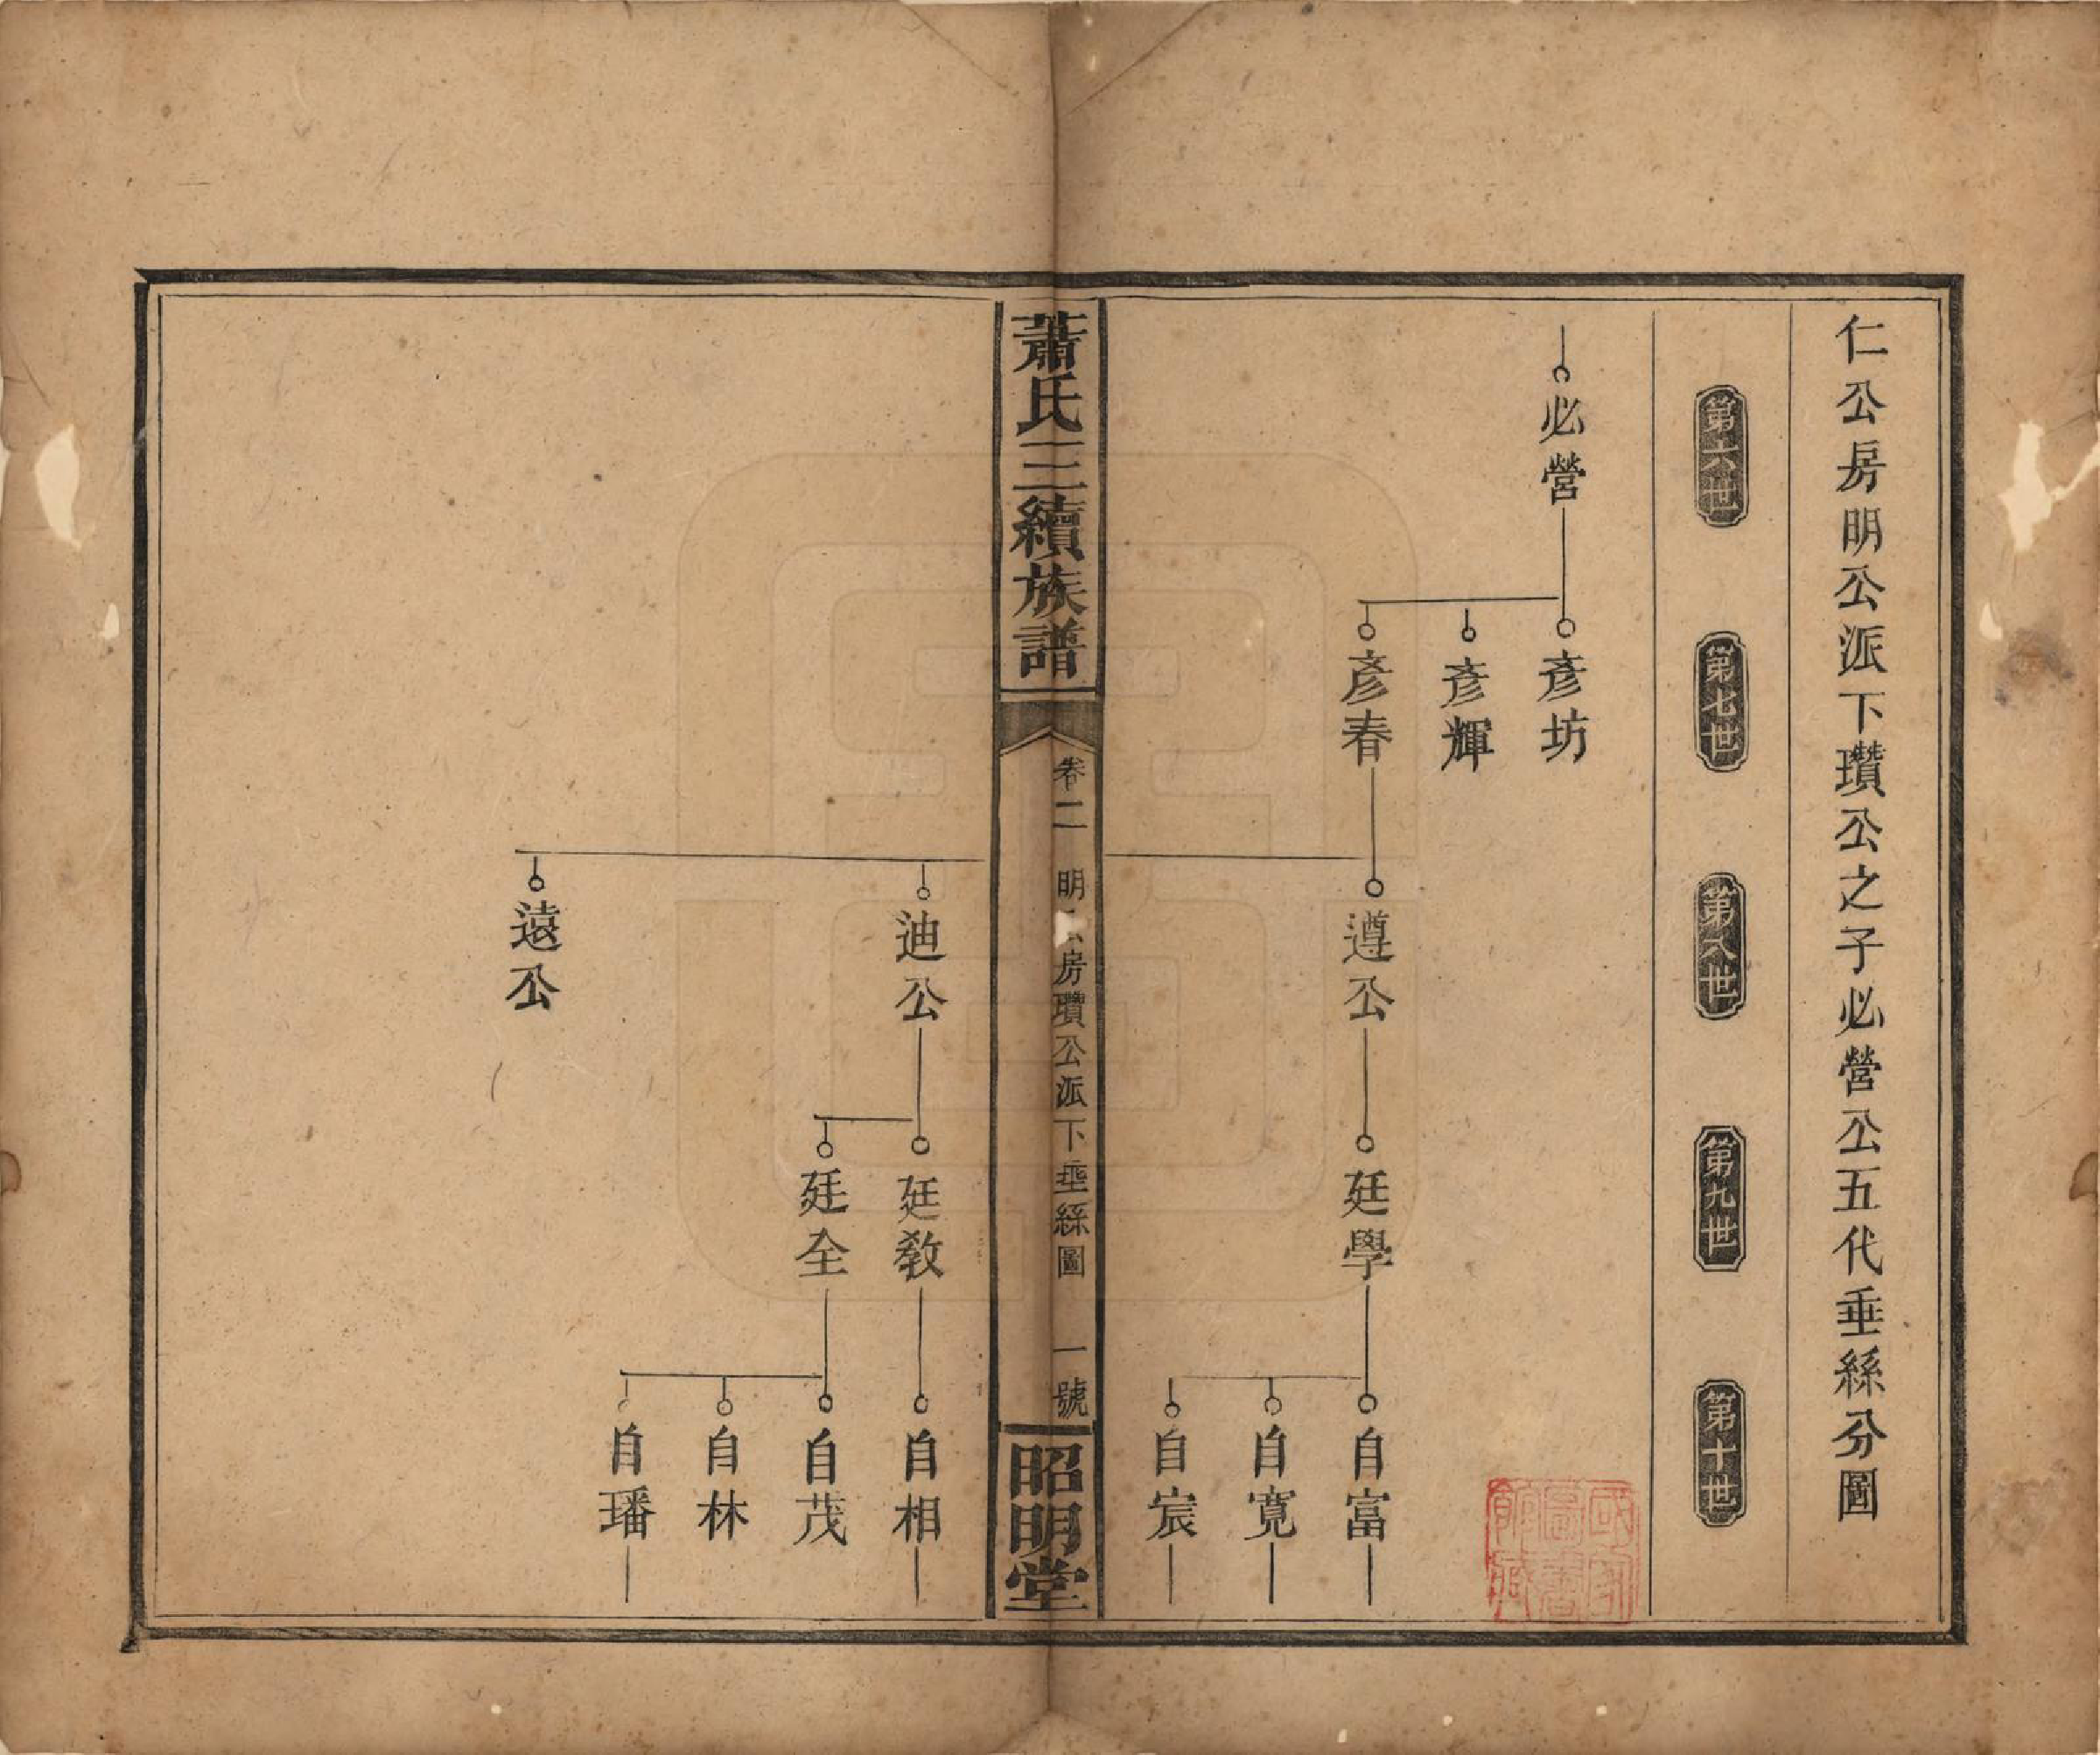 仁公房明公派下瓚公之子必營公五代垂絲分圖
第六世
第七世
第八世
第九世
第十世
必營
彥坊
彥輝
彥春
遵公
廷學
自富
自寬
自宸
蕭氏三續族譜
卷二
明公房瓚公派下垂絲圖
一號
昭明堂
迪公
廷教
自相
廷全
自茂
自林
自璠
遠公
國家圖書館藏